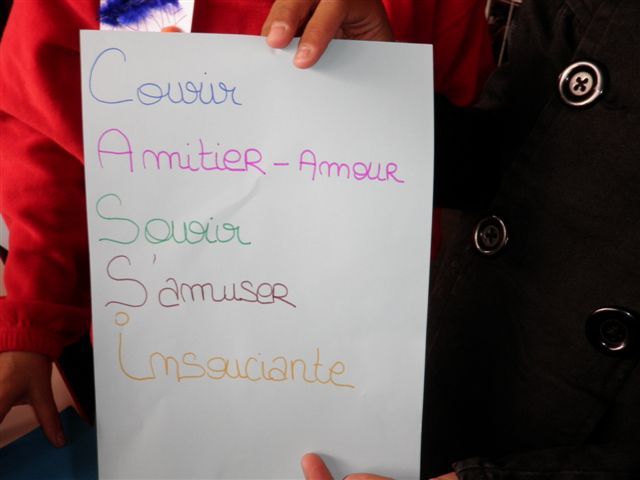 Courir
Amitier - Amour
Sourir
S'amuser
insouciante